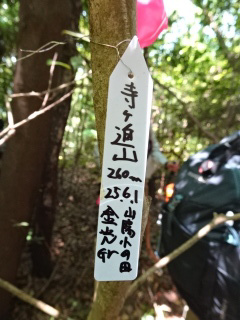 寺ヶ迫山
260m
25.6.1
山陽小の田
金光Gr